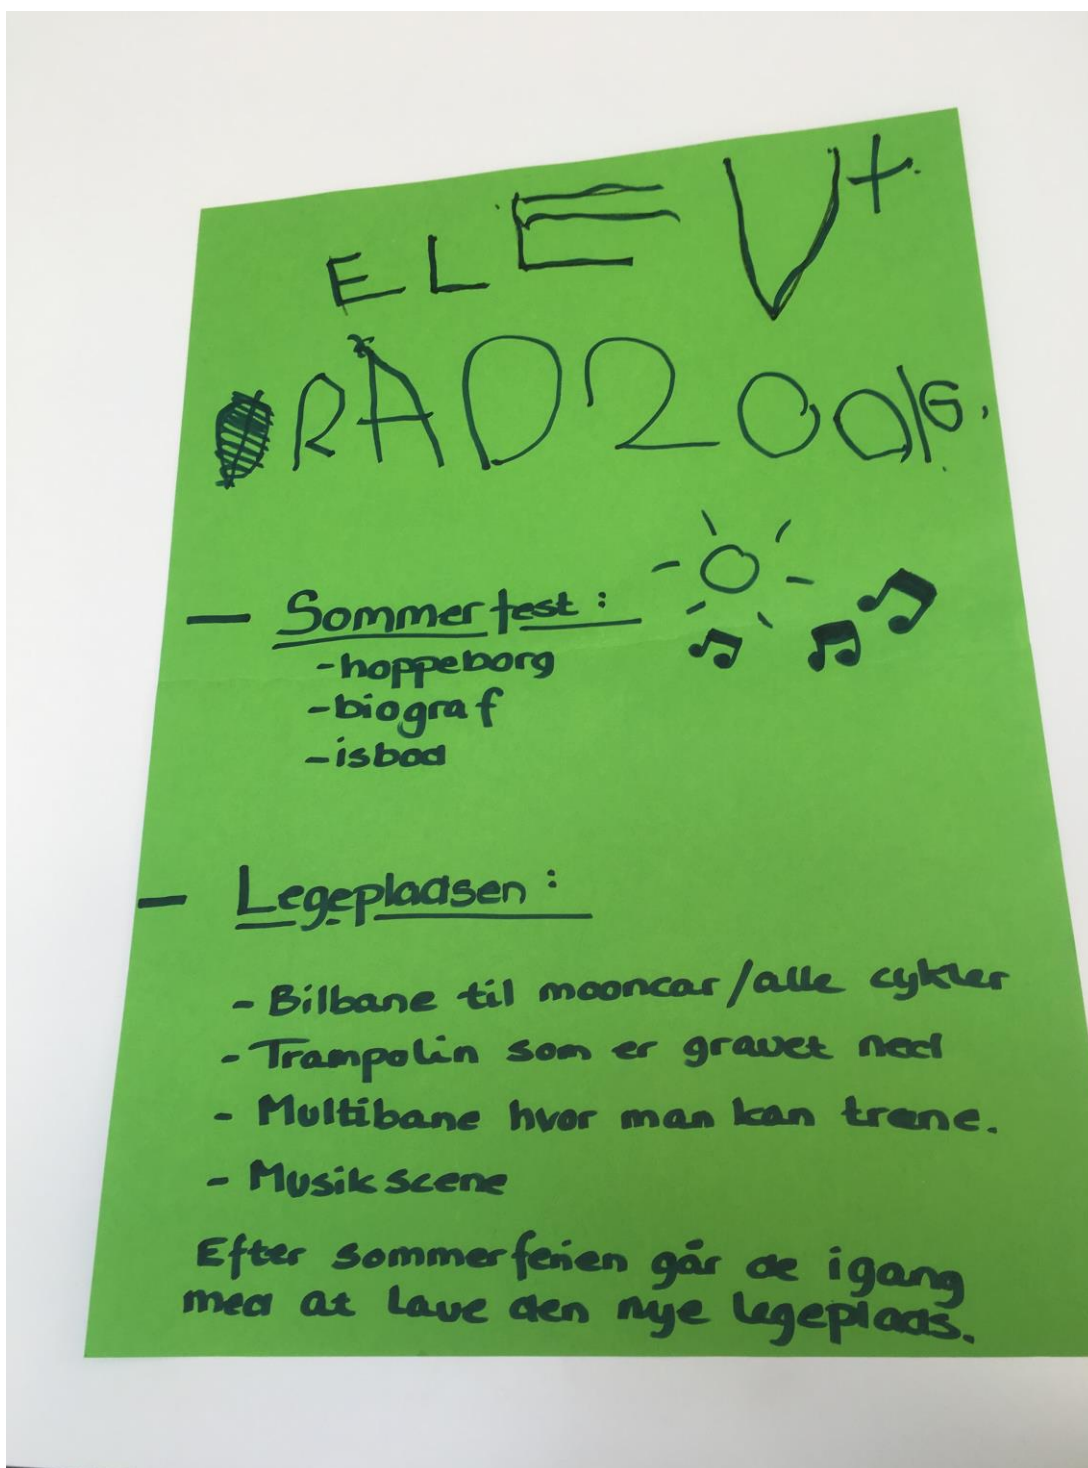 ELEV+
RÅD
- Sommerfest:
- hoppeborg
- biograf
- isbod
- Legepladsen:
- Bilbane til mooncar/alle cykler
- Trampolin som er gravet ned
- Multibane hvor man kan træne.
- Musik scene
Efter sommerferien går de igang
med at lave den nye legeplads.